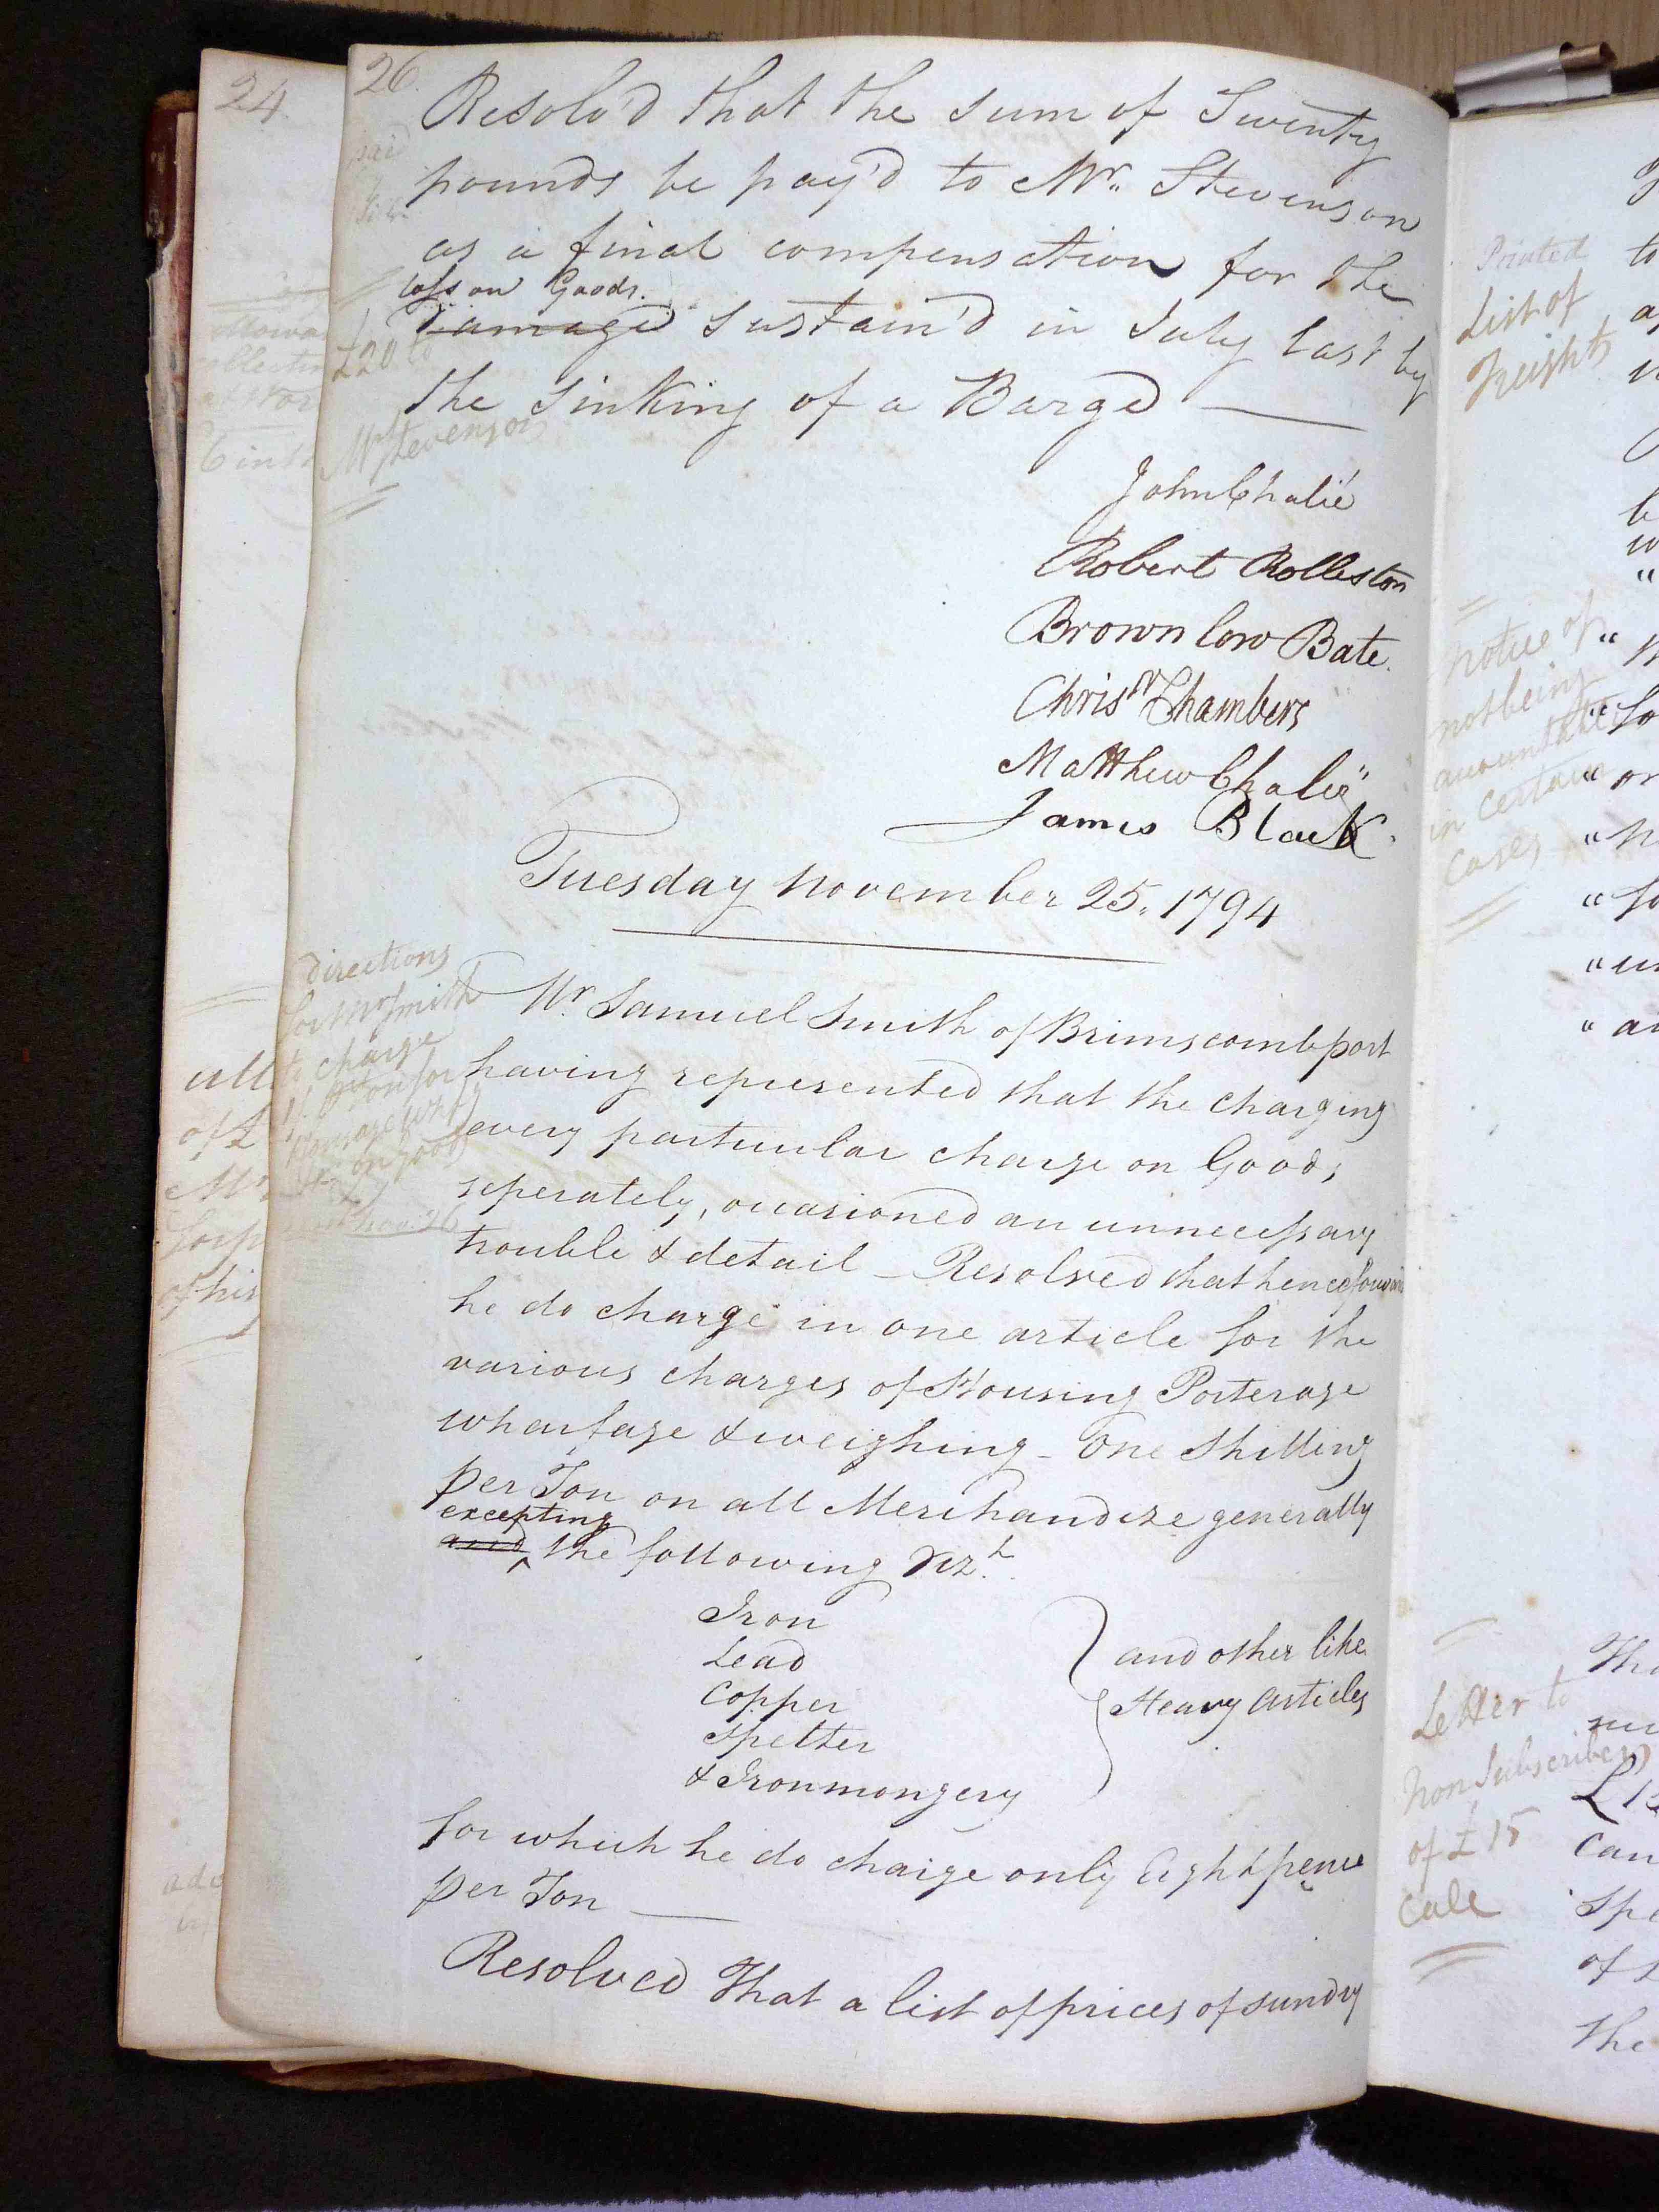 24.
26.
Resolv'd that the sum of Twenty
pounds be pay'd to Mr. Stevenson
as a final compensation for the
loss on Goods.
Damage sustain'd in July last by
the sinking of a Barge
paid
£20 to
Mr Stevenson
John Chalié
Robert Rolleston
Brownlow Bate.
Chrisr Chambers
Matthew Chalié
James Black
Tuesday November 25. 1794
directions
for Mr Smith
to charge
Mr. Samuel Smith of Brimscombport
having represented that the charging
every particular charge on Goods
seperately, occasioned an unnecessary
trouble & detail - Resolved that henceforward
he do charge in one article for the
various charges of Housing Porterage
wharfage & weighing - One Shilling
per Ton on all Merchandize generally
excepting
and the following vizt.
Iron
Lead
Copper
Spelter
& Ironmongery
and other like
Heavy Articles
for which he do charge only Eightpence
per Ton
Resolved That a list of prices of sundry
all
of £
Mr
of his
Printed
List of
Freights
notice of
not being
accountable
in Certain
Cases
Letter to
Non Subscribers
of £15
Call
to
the